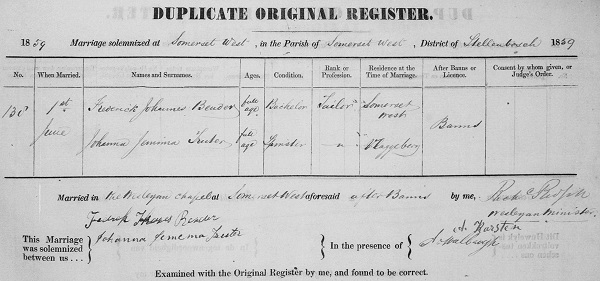 DUPLICATE ORIGINAL REGISTER.
1859 Marriage solemnized at Somerset West, in the Parish of Somerset West, District of Stellenbosch 1859
No. When Married. Names and Surnames. Ages. Condition. Rank or Profession. Residence at the Time of Marriage. After Banns or Licence. Consent by whom given, or Judge's Order.
1st Frederick Johannes Bender full age Bachelor Tailor Somerset West
June Banns
Johanna Jemima full age Spinster "
Married in the Wesleyan chapel at Somerset West aforesaid after Banns by me,
Wesleyan Minister.
This Marriage was solemnized between us
Bender
Johanna Jemema
In the presence of
Examined with the Original Register by me, and found to be correct.